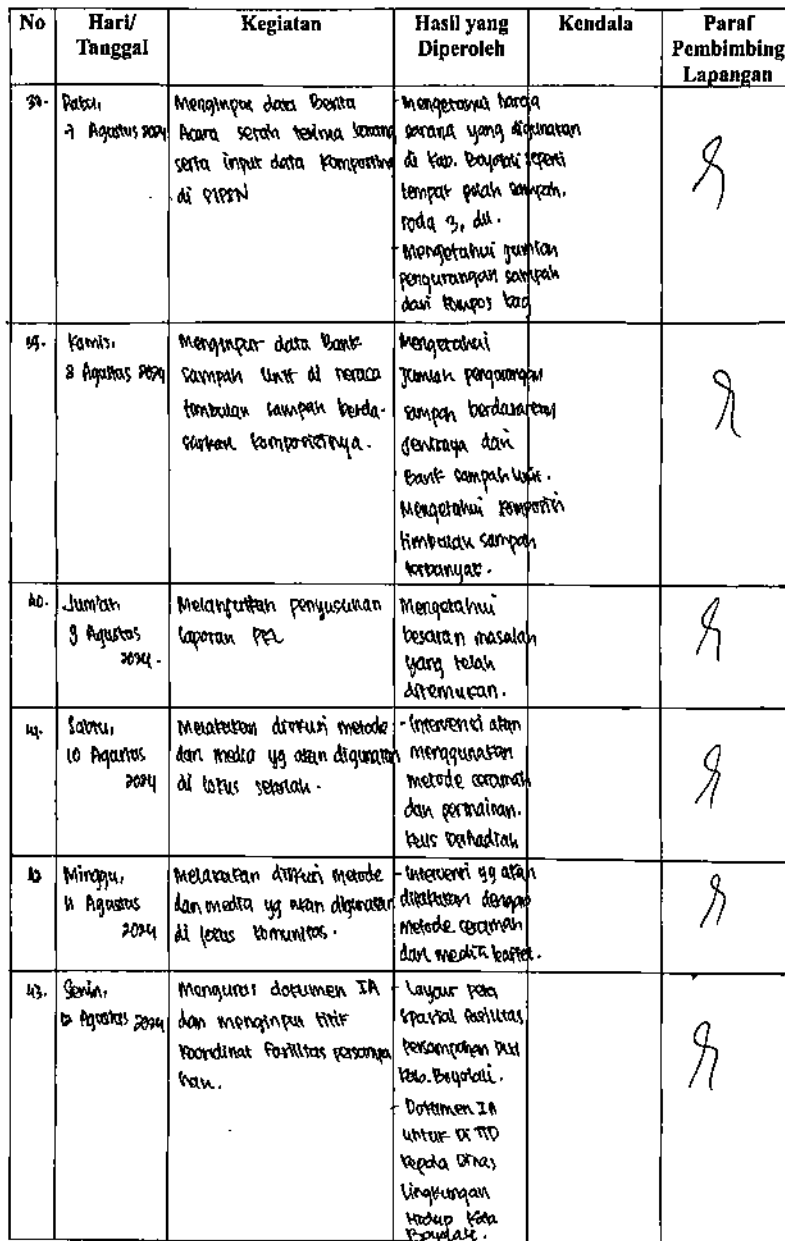 No Hari/ Kegiatan Hasil yang Kendala Paraf
Tanggal Diperoleh Pembimbing
Lapangan
Rabu,
7 Agustus 2024
Menginput data Berita
Acara serah terima barang
serta input data komposting
di SIPSN
- Mengetahui harga
sarana yang digunakan
di Kab. Boyolali seperti
tempat pilah sampah,
roda 3, dll.
- Mengetahui jumlah
pengurangan sampah
dari kompos bag
39. Kamis,
8 Agustus 2024
Menginput data Bank
sampah Unit di neraca
timbulan sampah berda-
sarkan komposisinya.
Mengetahui
jumlah pengurangan
sampah berdasarkan
dari
Bank sampah Unit.
Mengetahui komposisi
timbulan sampah
terbanyak.
40. Jum'at,
9 Agustus
2024.
Melanjutkan penyusunan
laporan PKL
Mengetahui
besaran masalah
yang telah
ditemukan.
41. Sabtu,
10 Agustus
2024
Melakukan diskusi metode
dan media yg akan digunakan
di lokus sekolah.
- Intervensi akan
menggunakan
metode ceramah
dan permainan.
kuis berhadiah
42 Minggu,
11 Agustus
2024
Melakukan diskusi metode
dan media yg akan digunakan
di lokus komunitas.
- Intervensi yg akan
dilakukan dengan
metode ceramah
dan media leaflet.
43. Senin,
12 Agustus 2024
Mengurus dokumen IA
dan menginput titik
koordinat fasilitas persampa
han.
- Layout peta
spasial fasilitas
persampahan
Kab. Boyolali.
- Dokumen IA
untuk di TTD
kepala Dinas
Lingkungan
Hidup Kab
Boyolali.